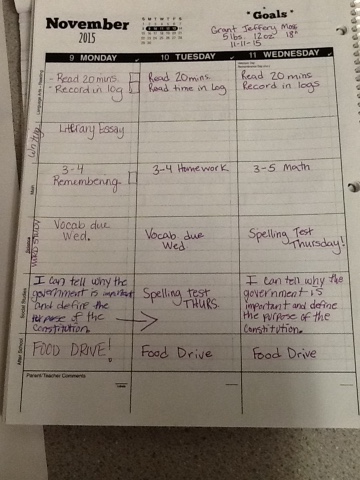 November
2015
*Goals*
Grant Jeffery Moss
5lbs. 12oz 18"
11-11-15
9 MONDAY
10 TUESDAY
11 WEDNESDAY
- Read 20 mins.
- Record in log
Read 20 mins
Read time in log
Read 20 mins
Record in logs
Writing
Literary Essay
Math
3-4
Remembering
3-4 Homework
3-5 Math
Science
Vocab due
Wed.
Vocab due
Wed
Spelling Test
Thursday!
Social Studies
I can tell why the
government is important
and define the
purpose of the
Constitution.
Spelling Test
THURS.
I can tell why the
government is
important and define
the purpose of the
Constitution.
After School
FOOD DRIVE!
Food Drive
Food Drive
Parent/Teacher Comments